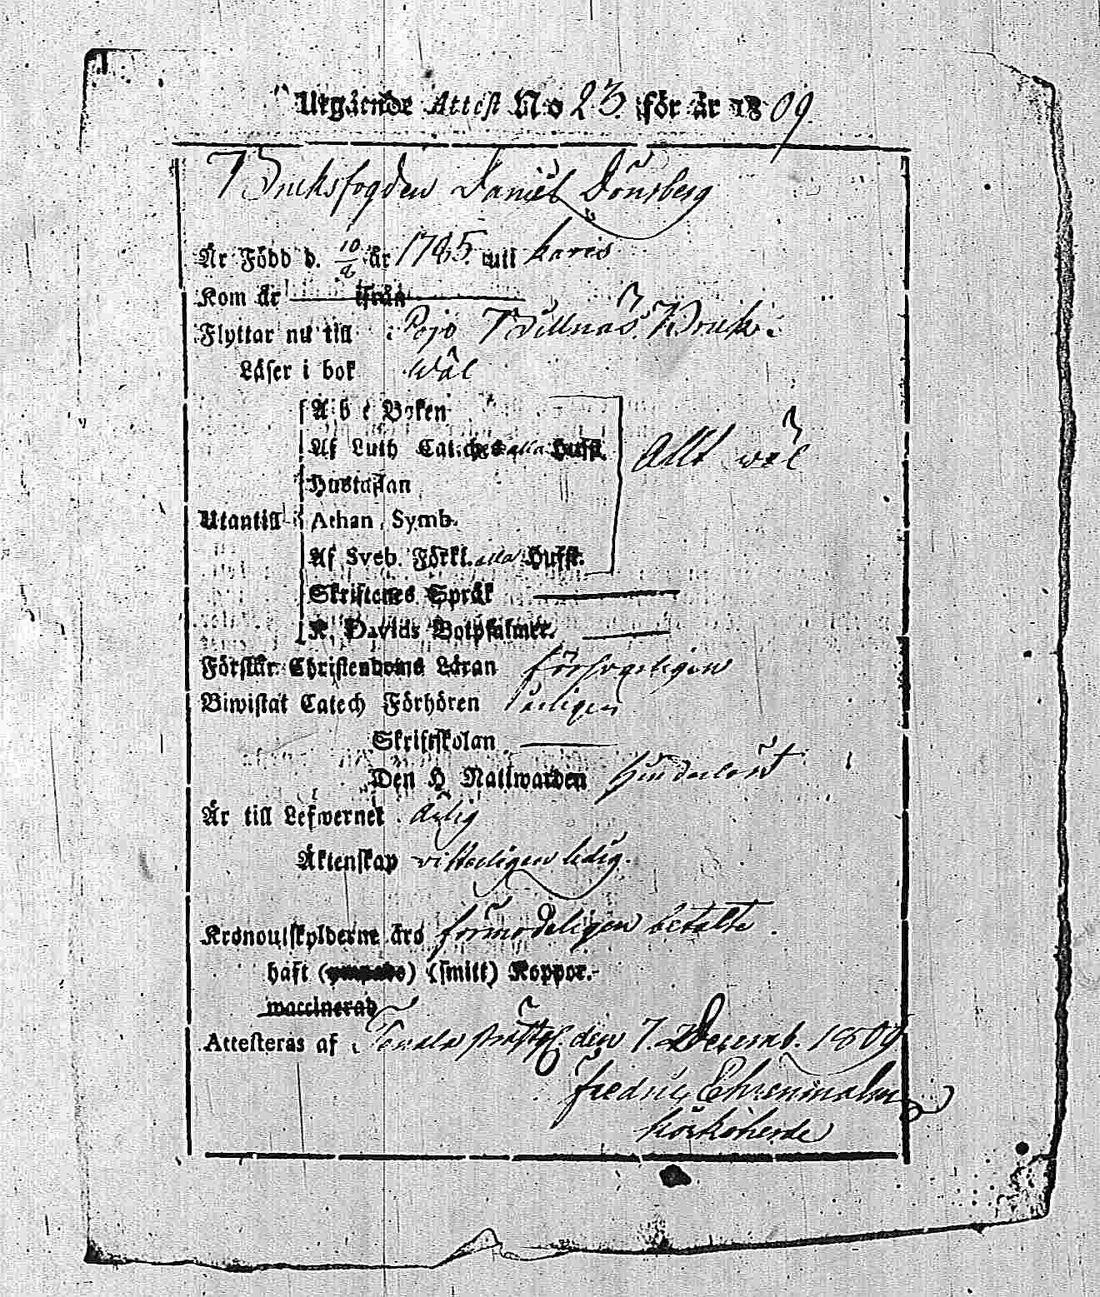 Utgående Attest No 23. för år 1809
Bruksfogden Daniel Dönsberg
Är Född d. 10/8 år 1785. uti Karis
Kom år ifrån
Flyttar nu till Pojo Billnäs Bruk
Läser i bok wäl
A b c Boken
Af Luth Catches alla Hufst.
Hustaflan
Allt wäl
Utantill Athan. Symb.
Af Sveb. Förkl. alla Hufst.
Skriftenes Språk
K. Davids Botpsalmer.
Förstår Christendoms Läran försvarligen
Biwistat Catech Förhören
Skriftskolan
Den H Nattwarden hinderlöst
Är till Lefwernet ärlig
Äktenskap vitterligen ledig.
Kronoutskylderne äro förmodeligen betalte.
haft (smitt) Koppor.
waccinerad
Attesteras af Tenala prästg. den 7. Decemb. 1809
Fredric Ehrenmalm
Kÿrkoherde